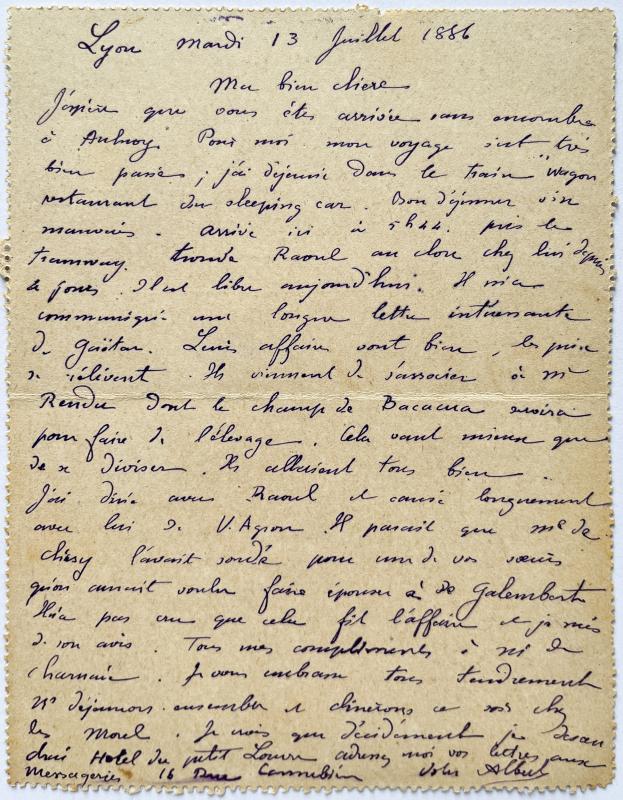 Lyon Mardi 13 Juillet 1886
Ma bien chère
J'espère que vous êtes arrivée sans encombre
à Aulnoy. Pour moi mon voyage s'est très
bien passé ; j'ai déjeuné dans le train Wagon
restaurant du sleeping car. Bon déjeuner vin
mauvais. arrivé ici à 5h44. pris le
tramway. trouvé Raoul au clou chez lui depuis
jours. Il est libre aujourd'hui. Il m'a
communiqué une longue lettre intéressante
de Gaëtan. Leurs affaires vont bien, les prix
se relèvent. Ils viennent de s'associer à Mr
Rendu dont le champ de Bacacua servira
pour faire de l'élevage. Cela vaut mieux que
de se diviser. Ils allaient tous bien
J'ai diné avec Raoul et causé longuement
avec lui de V. Agron. Il parait que Me de
Chézy l'avait sondé pour une de vos sœurs
qu'on aurait voulu faire épouser à de Galembert
Il n'a pas cru que cela fit l'affaire et je suis
de son avis. Tous mes compliments à M de
Charnacé. Je vous embrasse tous tendrement
Ns déjeunons ensemble et dinerons ce soir chez
les Morel. Je crois que décidément je
Hotel du petit Louvre adressez moi vos lettres aux
Messageries 16 Rue Cannebière votre Albert